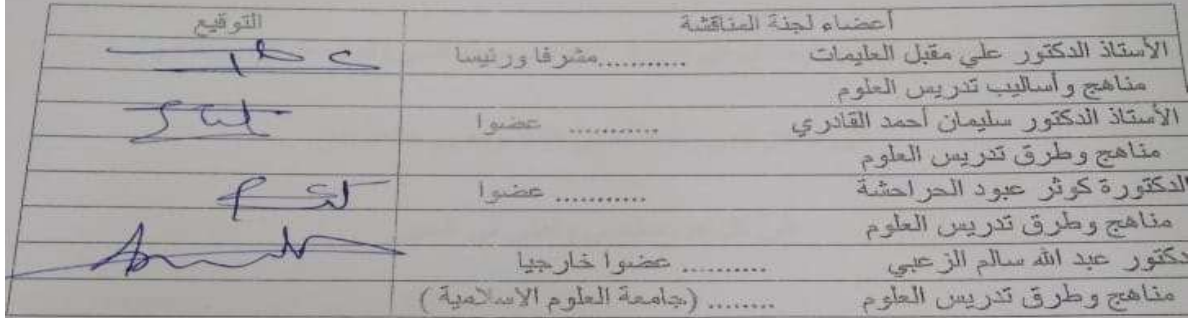 أعضاء لجنة المناقشة التوقيع
الأستاذ الدكتور علي مقبل العليمات ...........مشرفا ورئيسا
مناهج وأساليب تدريس العلوم
الأستاذ الدكتور سليمان أحمد القادري ........... عضوا
مناهج وطرق تدريس العلوم
الدكتورة كوثر عبود الحراحشة ........... عضوا
مناهج وطرق تدريس العلوم
دكتور عبد الله سالم الزعبي .......... عضوا خارجيا
مناهج وطرق تدريس العلوم ........ (جامعة العلوم الاسلامية )